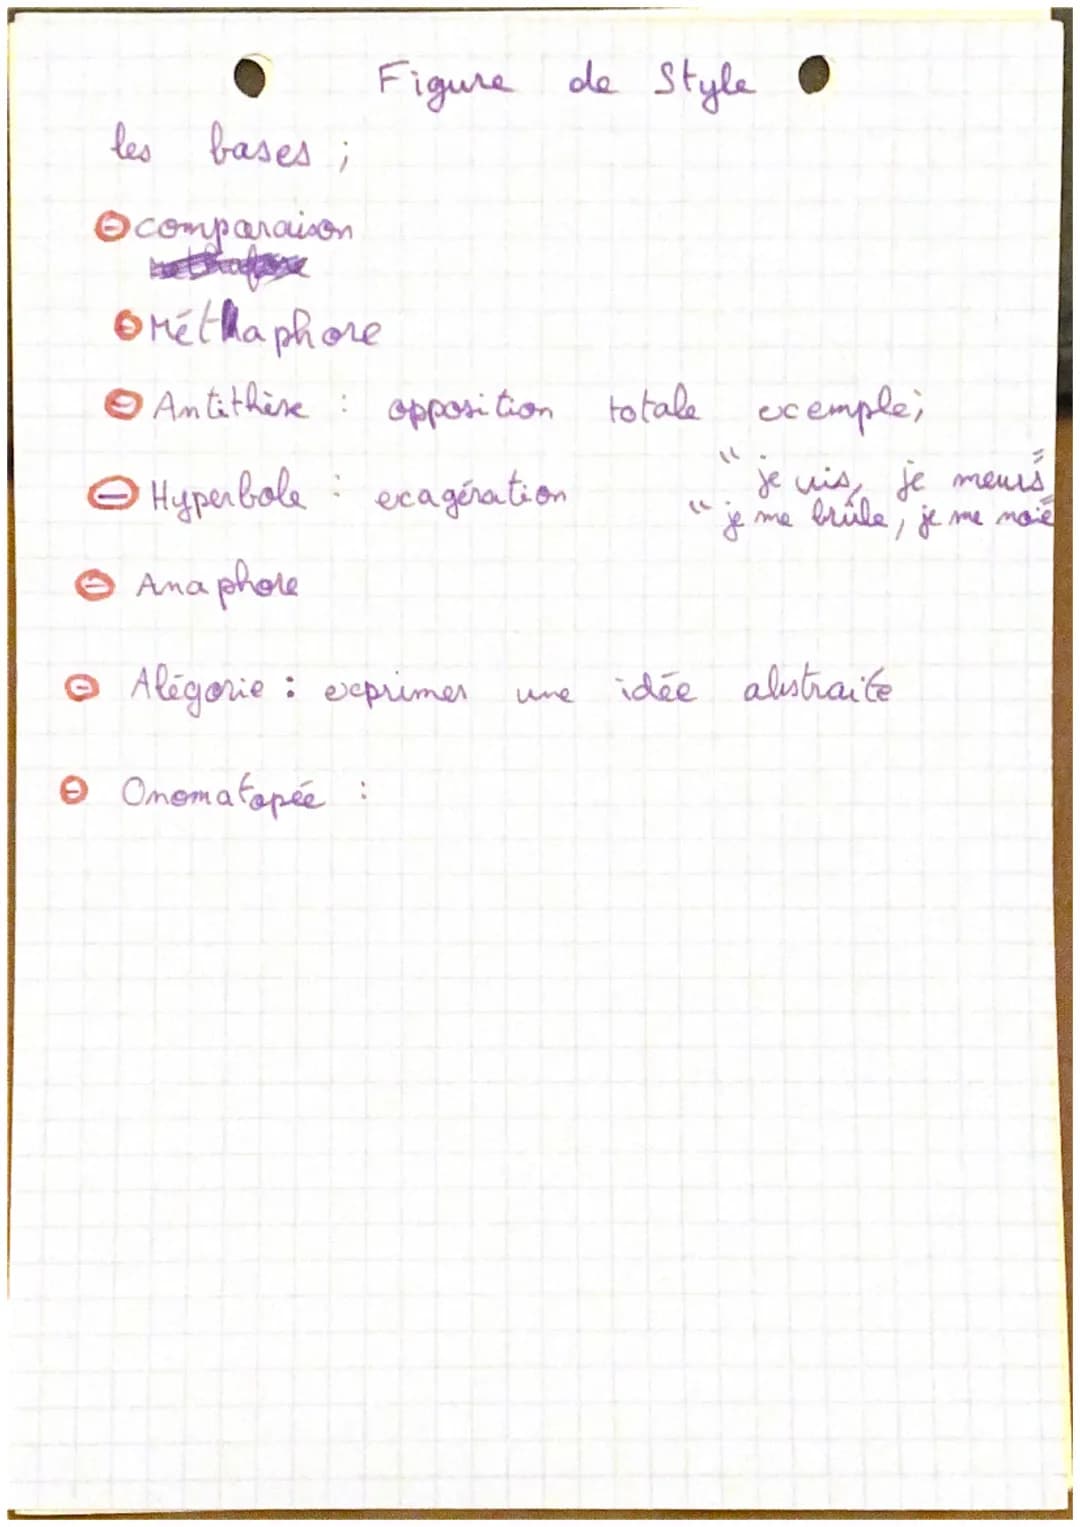 Figure de Style
les bases ;
⊖ comparaison
⊖ Méthaphore
⊖ Antithèse : opposition totale exemple ;
"je vis, je meurs"
⊖ Hyperbole : exagération
"je me brûle, je me noie"
⊖ Anaphore
⊖ Alégorie : exprimer une idée abstraite
⊖ Onomatopée :